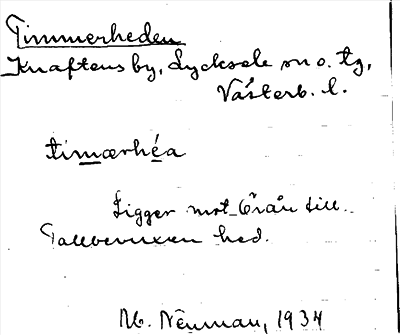 Timmerheden
Knaftens by, Lycksele sn o. tg,
Västerb. l.
timærhéa
Ligger mot Örån till.
Tallbevuxen hed.
Neuman, 1934